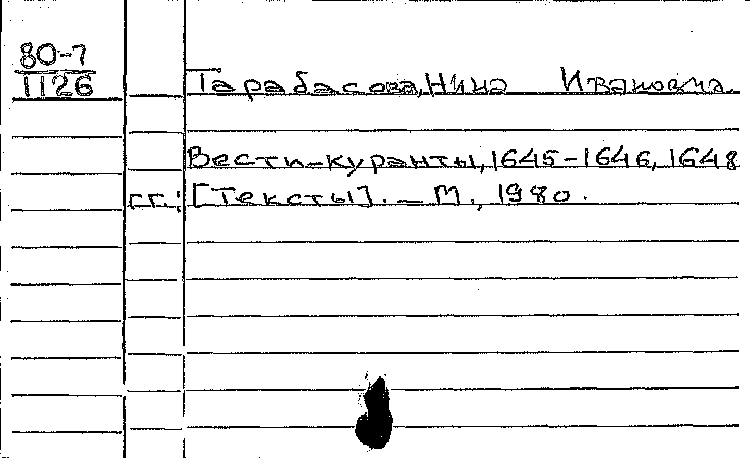 80-7
1126
Тарабасова, Нина Ивановна.
Вести-куранты, 1645-1646, 1648
гг.: [Тексты]. - М., 1980.